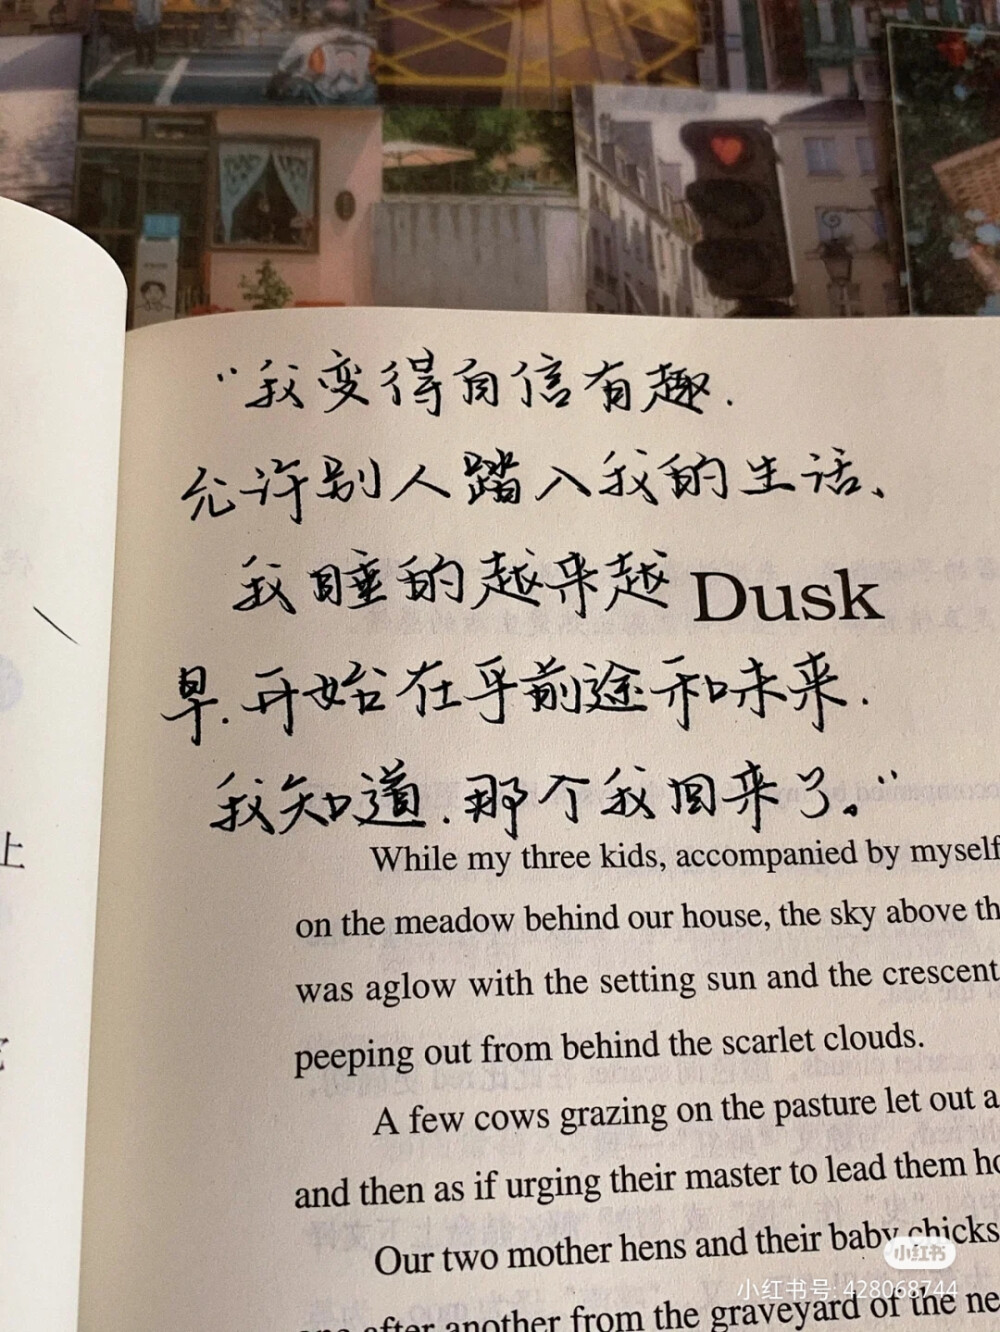 “我变得自信有趣.
允许别人踏入我的生活、
我睡的越来越
Dusk
早.开始在乎前途和未来.
我知道.那个我回来了。”
While my three kids, accompanied by myself
on the meadow behind our house, the sky above th
was aglow with the setting sun and the crescent
peeping out from behind the scarlet clouds.
A few cows grazing on the pasture let out a
and then as if urging their master to lead them ho
Our two mother hens and their baby chicks
after another from the graveyard of the ne
上
小红书
小红书号: 428068744